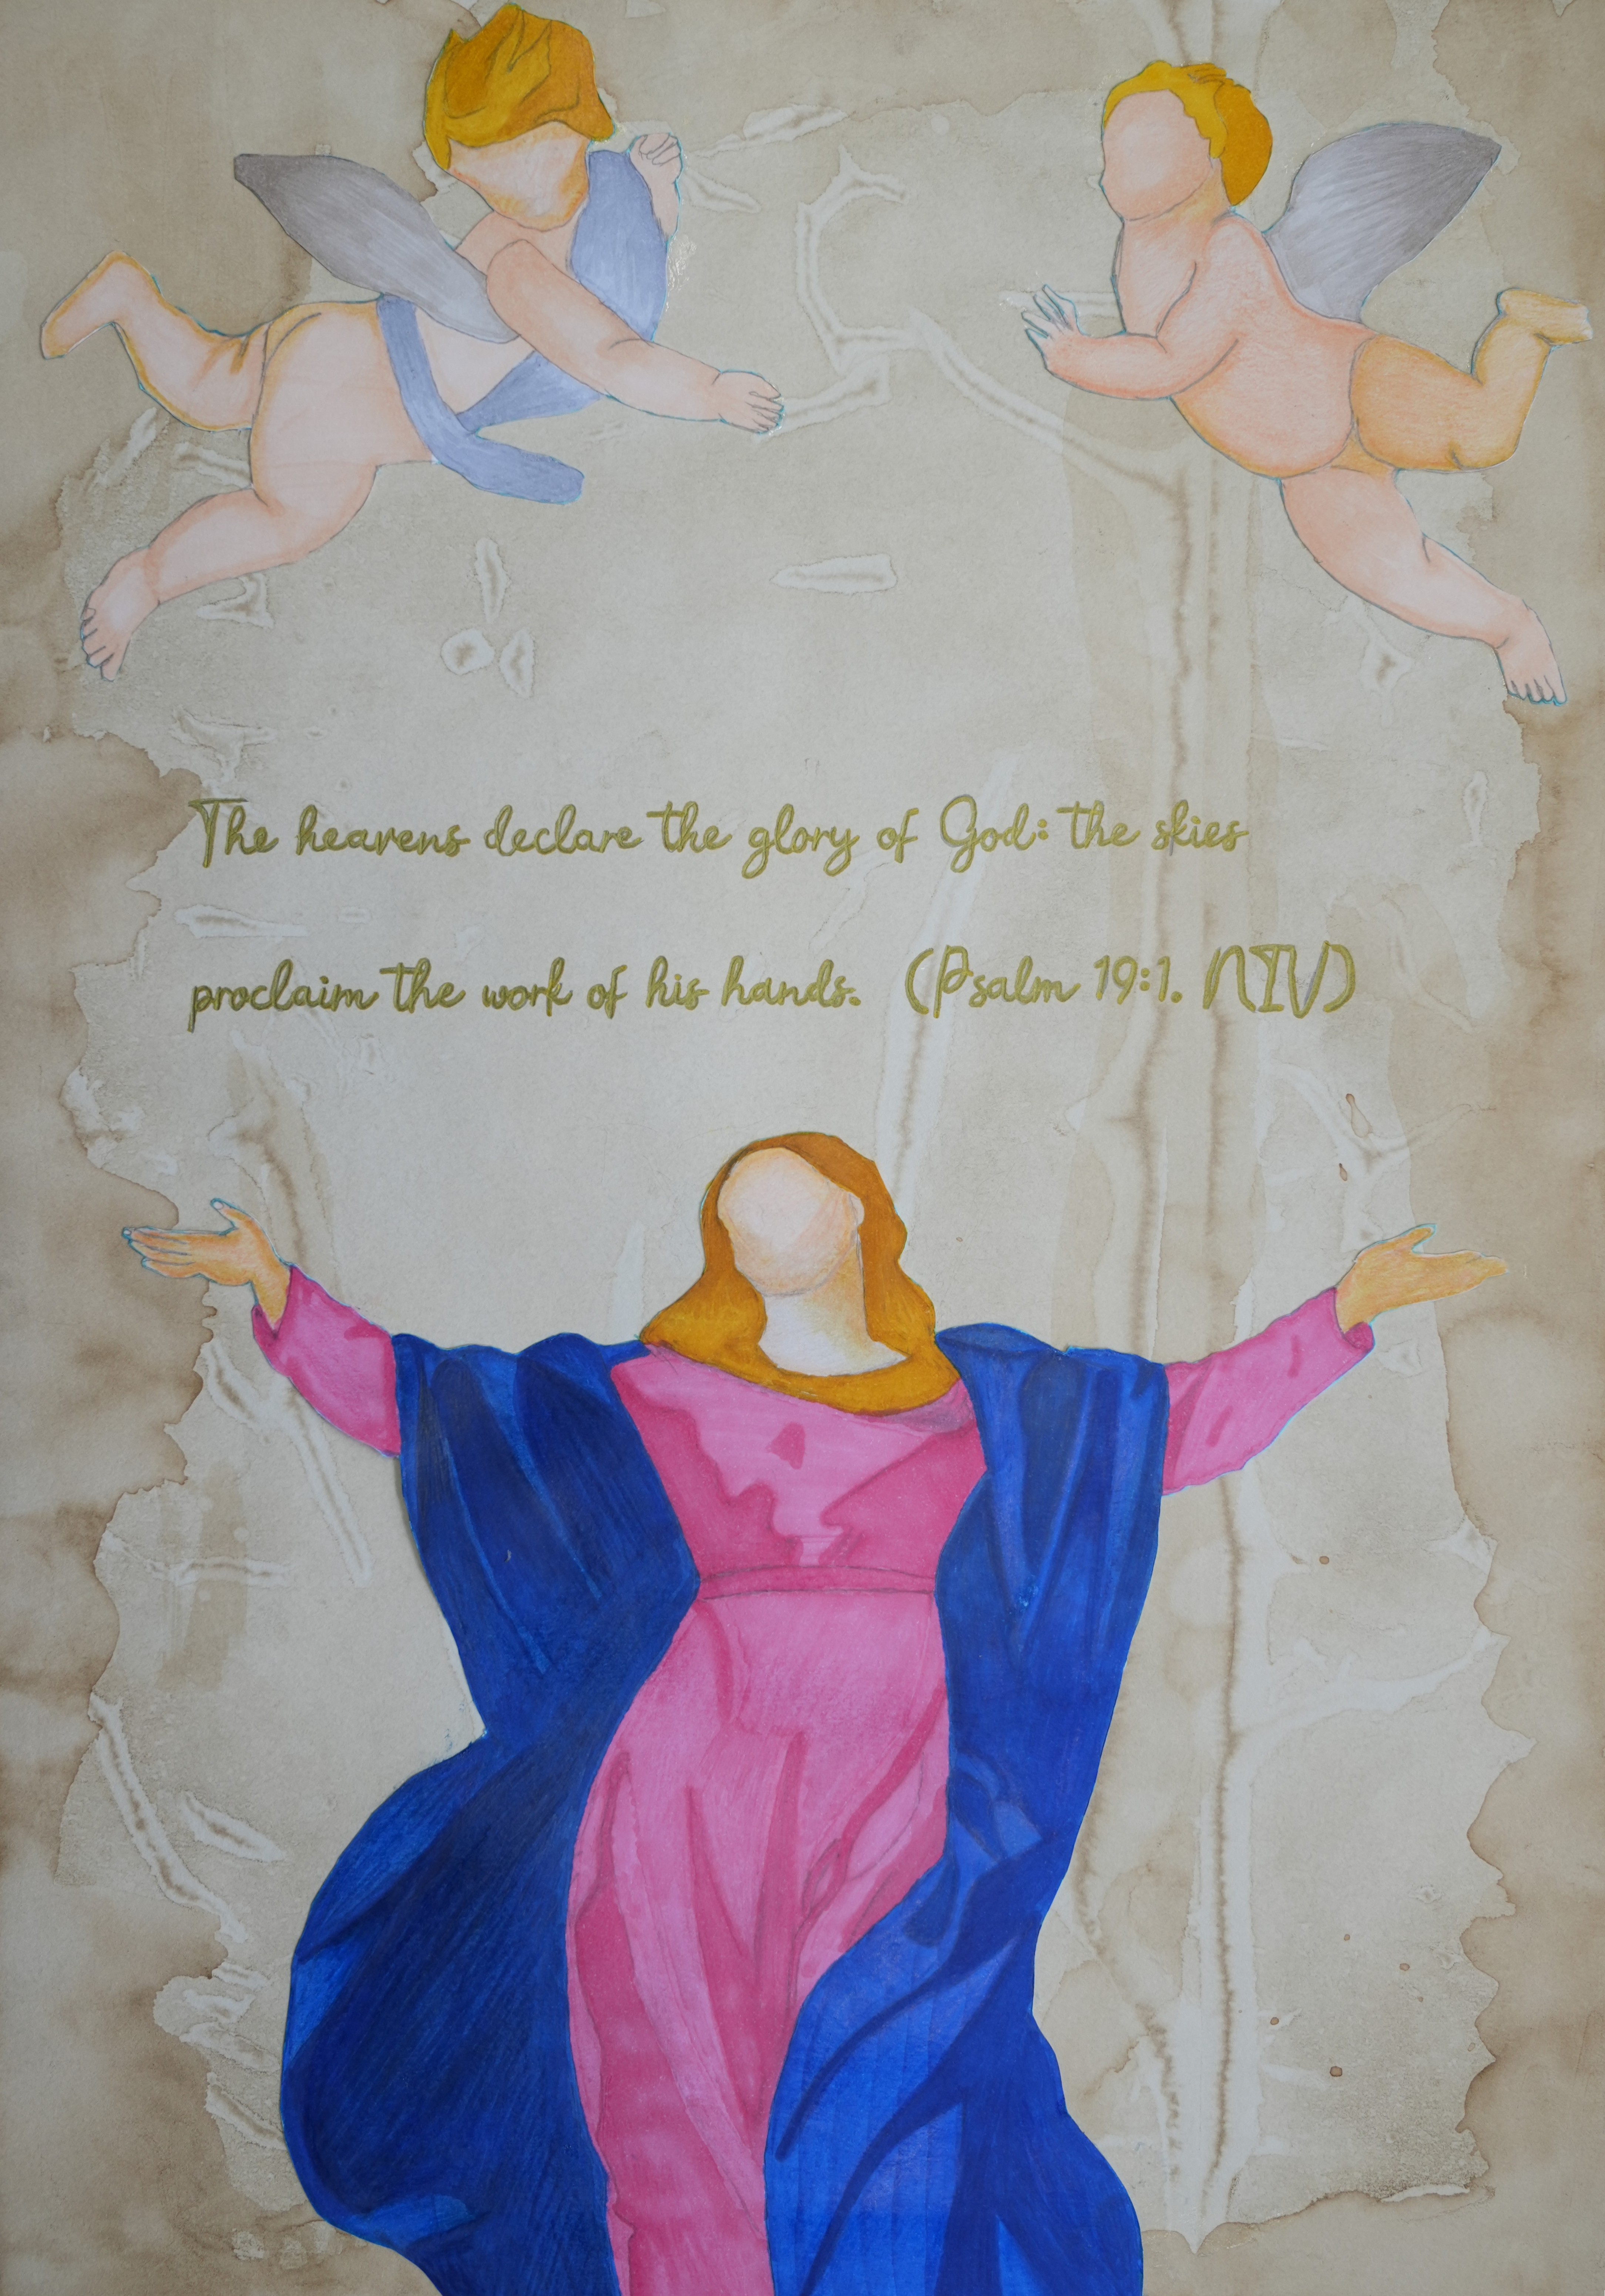 The heavens declare the glory of God: the skies
proclaim the work of his hands. (Psalm 19:1. NIV)